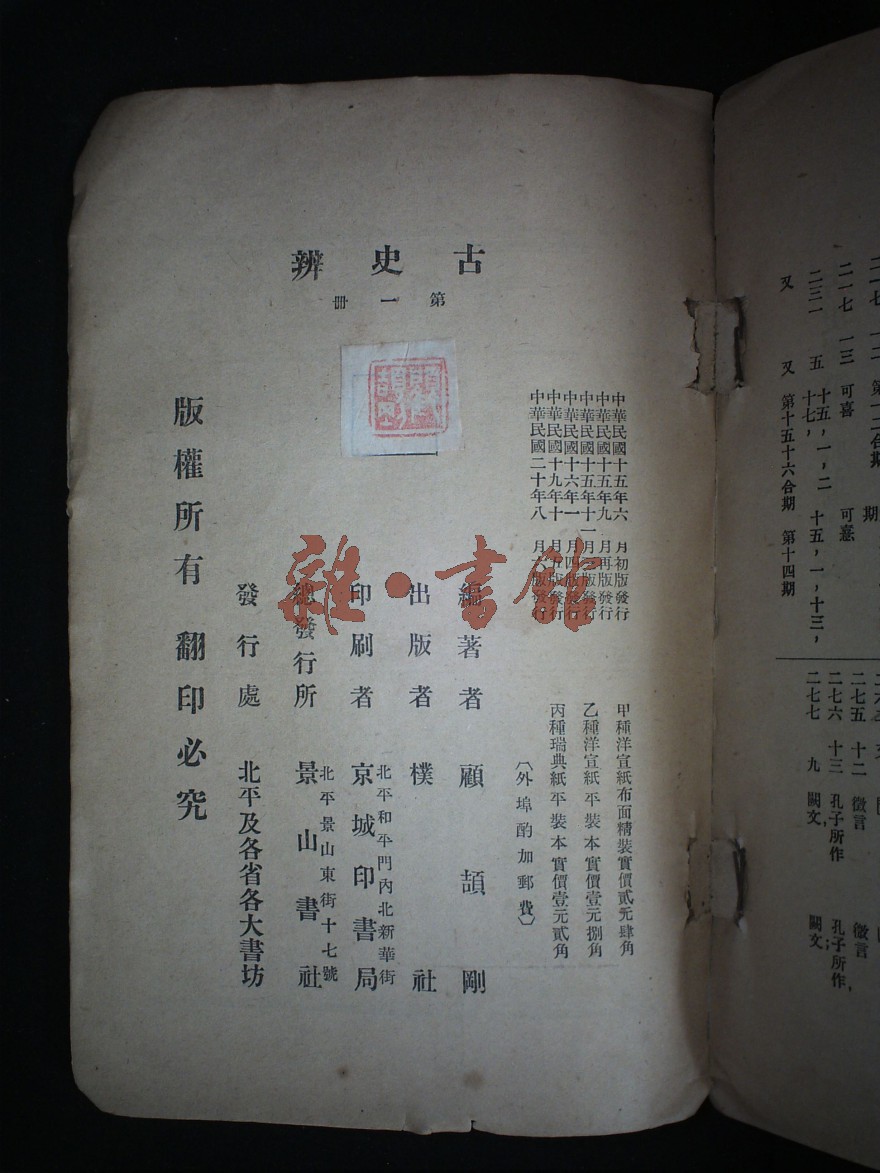 古史辨
第一冊
中華民國十五年六月初版發行
中華民國十五年九月再版發行
中華民國十五年十一月三版發行
中華民國十六年一月四版發行
中華民國十九年十月五版發行
中華民國二十年八月六版發行
甲種洋宣紙布面精裝實價貳元肆角
乙種洋宣紙平裝本實價壹元捌角
丙種瑞典紙平裝本實價壹元貳角
(外埠酌加郵費)
編著者 顧頡剛
出版者 樸社
北平和平門內北新華街
印刷者 京城印書局
北平景山東街十七號
總發行所 景山書社
發行處 北平及各省各大書坊
版權所有 翻印必究
雜·書館
期
第十五十六合期 第十四期
又 又
二三一 五 十七, 十五,一,十三,
二一七 一三 可喜 可憙
十五,一,二
二七五 十二 微言 微言
二七六 十三 孔子所作 孔子所作,
二七七 九 闕文 闕文